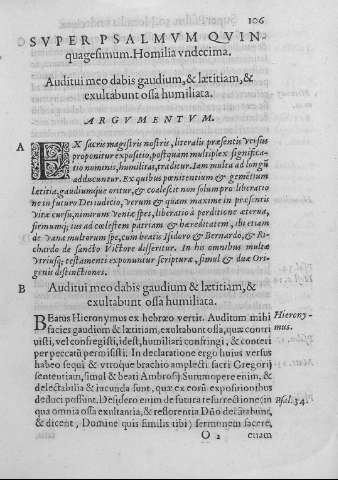 106
SVPER PSALMVM QVIN
quagesimum. Homilia vndecima.
Auditui meo dabis gaudium, & lætitiam, &
exultabunt ossa humiliata.
ARGVMENTVM.
A EX sacris magistris nostris, literalis præsentis versus
proponitur expositio, postquam multiplex significa-
tio nominis, humilitas, traditur. Iam multa ad longũ
adducuntur. Ex quibus pœnitentium & gementium
lætitia, gaudiumque oritur, & coalescit non solum pro liberatio
ne in futuro Dei iudicio, verum & quam maxime in præsentis
vitæ cursu, nimirum veniæ spes, liberatio à perditione æterna,
firmumq; ius ad cœlestem patriam & hæreditatem, ibi etiam
de vana multorum spe, cum beatis Isidoro & Bernardo, & Ri-
chardo de sancto Victore disseritur. In his omnibus multæ
vtriusq; testamenti exponuntur scripturæ, simul & duæ Ori-
genis distinctiones.
B Auditui meo dabis gaudium & lætitiam, &
exultabunt ossa humiliata.
BEatus Hieronymus ex hebræo vertit. Auditum mihi
facies gaudium & lætitiam, exultabunt ossa, quæ contri
uisti, vel confregisti, idest, humiliari constringi, & conteri
per peccatũ permisisti. In declaratione ergo huius versus
habeo sequi & vtroque brachio amplecti sacri Gregorij
sententiam, simul & beati Ambrosij. Summopere enim, &
delectabilia & iucunda sunt, quæ ex eorũ expositionibus
deduci possunt. Desusero enim de futura resurrectione; in
qua omnia ossa exultantia, & reflorentia Dño decãtabunt,
& dicent, Domine quis similis tibi; sermonem facere,
O 2 etiam
Hierony-
mus.
Psal. 34.